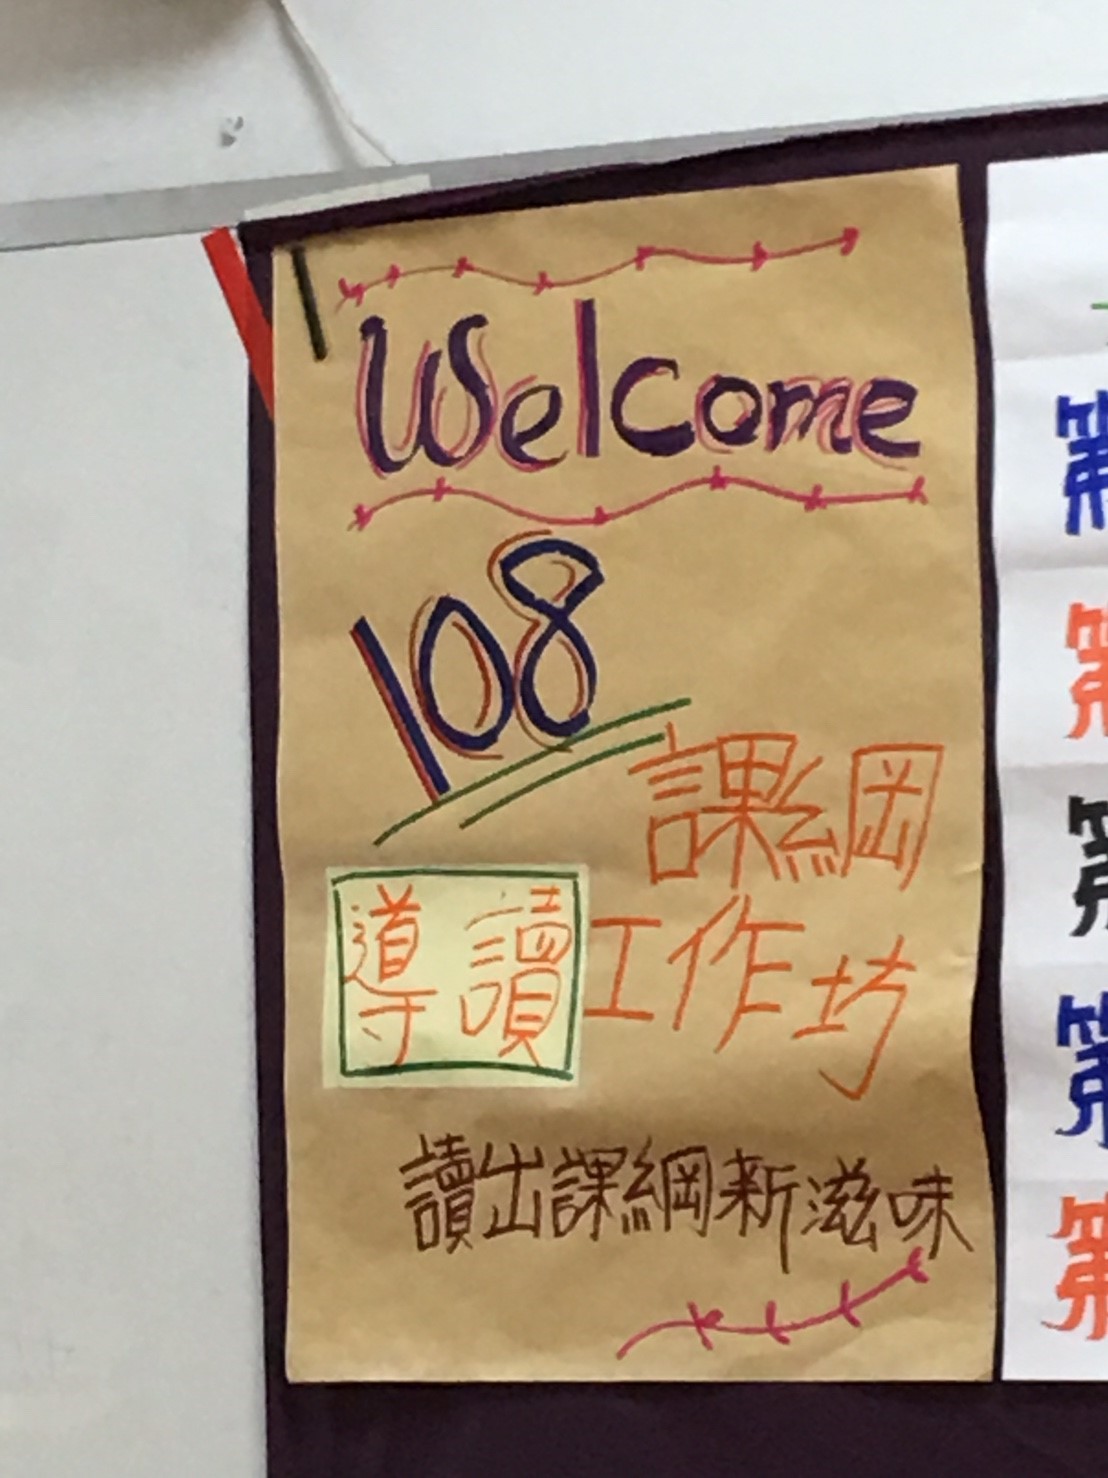 Welcome
108
課綱
導讀 工作坊
讀出課綱新滋味
第
第
第
第
第